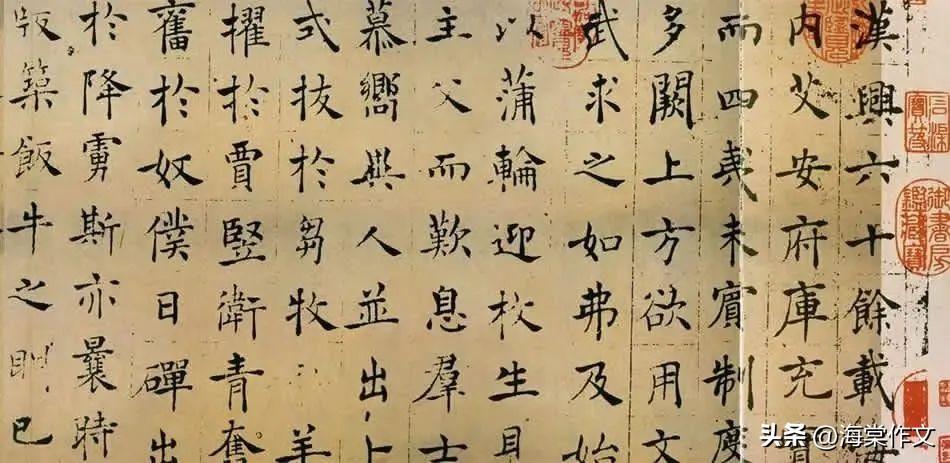 漢興六十餘載海
內艾安府庫充實
而四夷未賓制度
多闕上方欲用文
武求之如弗及始
以蒲輪迎枚生見
主父而歎息羣士
慕嚮異人並出卜
式拔於芻牧羊
擢於賈豎衛青奮
舊於奴僕日磾出
於降虜斯亦曩時
版築飯牛之朋已
石渠寶笈
御書房鑑藏寶
头条 @海棠作文